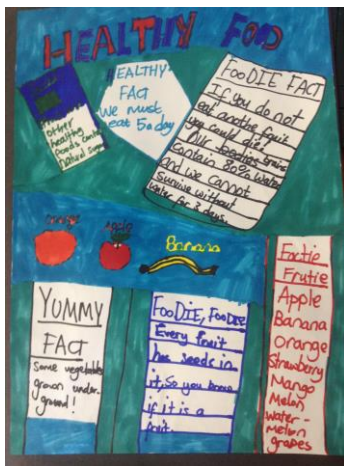 HEALTHY FOOD
Other
healthy
foods contain
natural sugar
HEALTHY
FACT
we must
eat 5 a day
FOODIE FACT
If you do not
eat another fruit
you could die!
Our brains
contain 80% water
and we cannot
survive without
water for 3 days.
Orange
Apple
Banana
YUMMY
FACT
Some vegetables
grown under-
ground!
FOODIE, FOODIE
Every fruit
has seeds in
it, So you know
if it is a
fruit.
Factie
Frutie
Apple
Banana
Orange
Strawberry
Mango
Melon
water-
melon
grapes